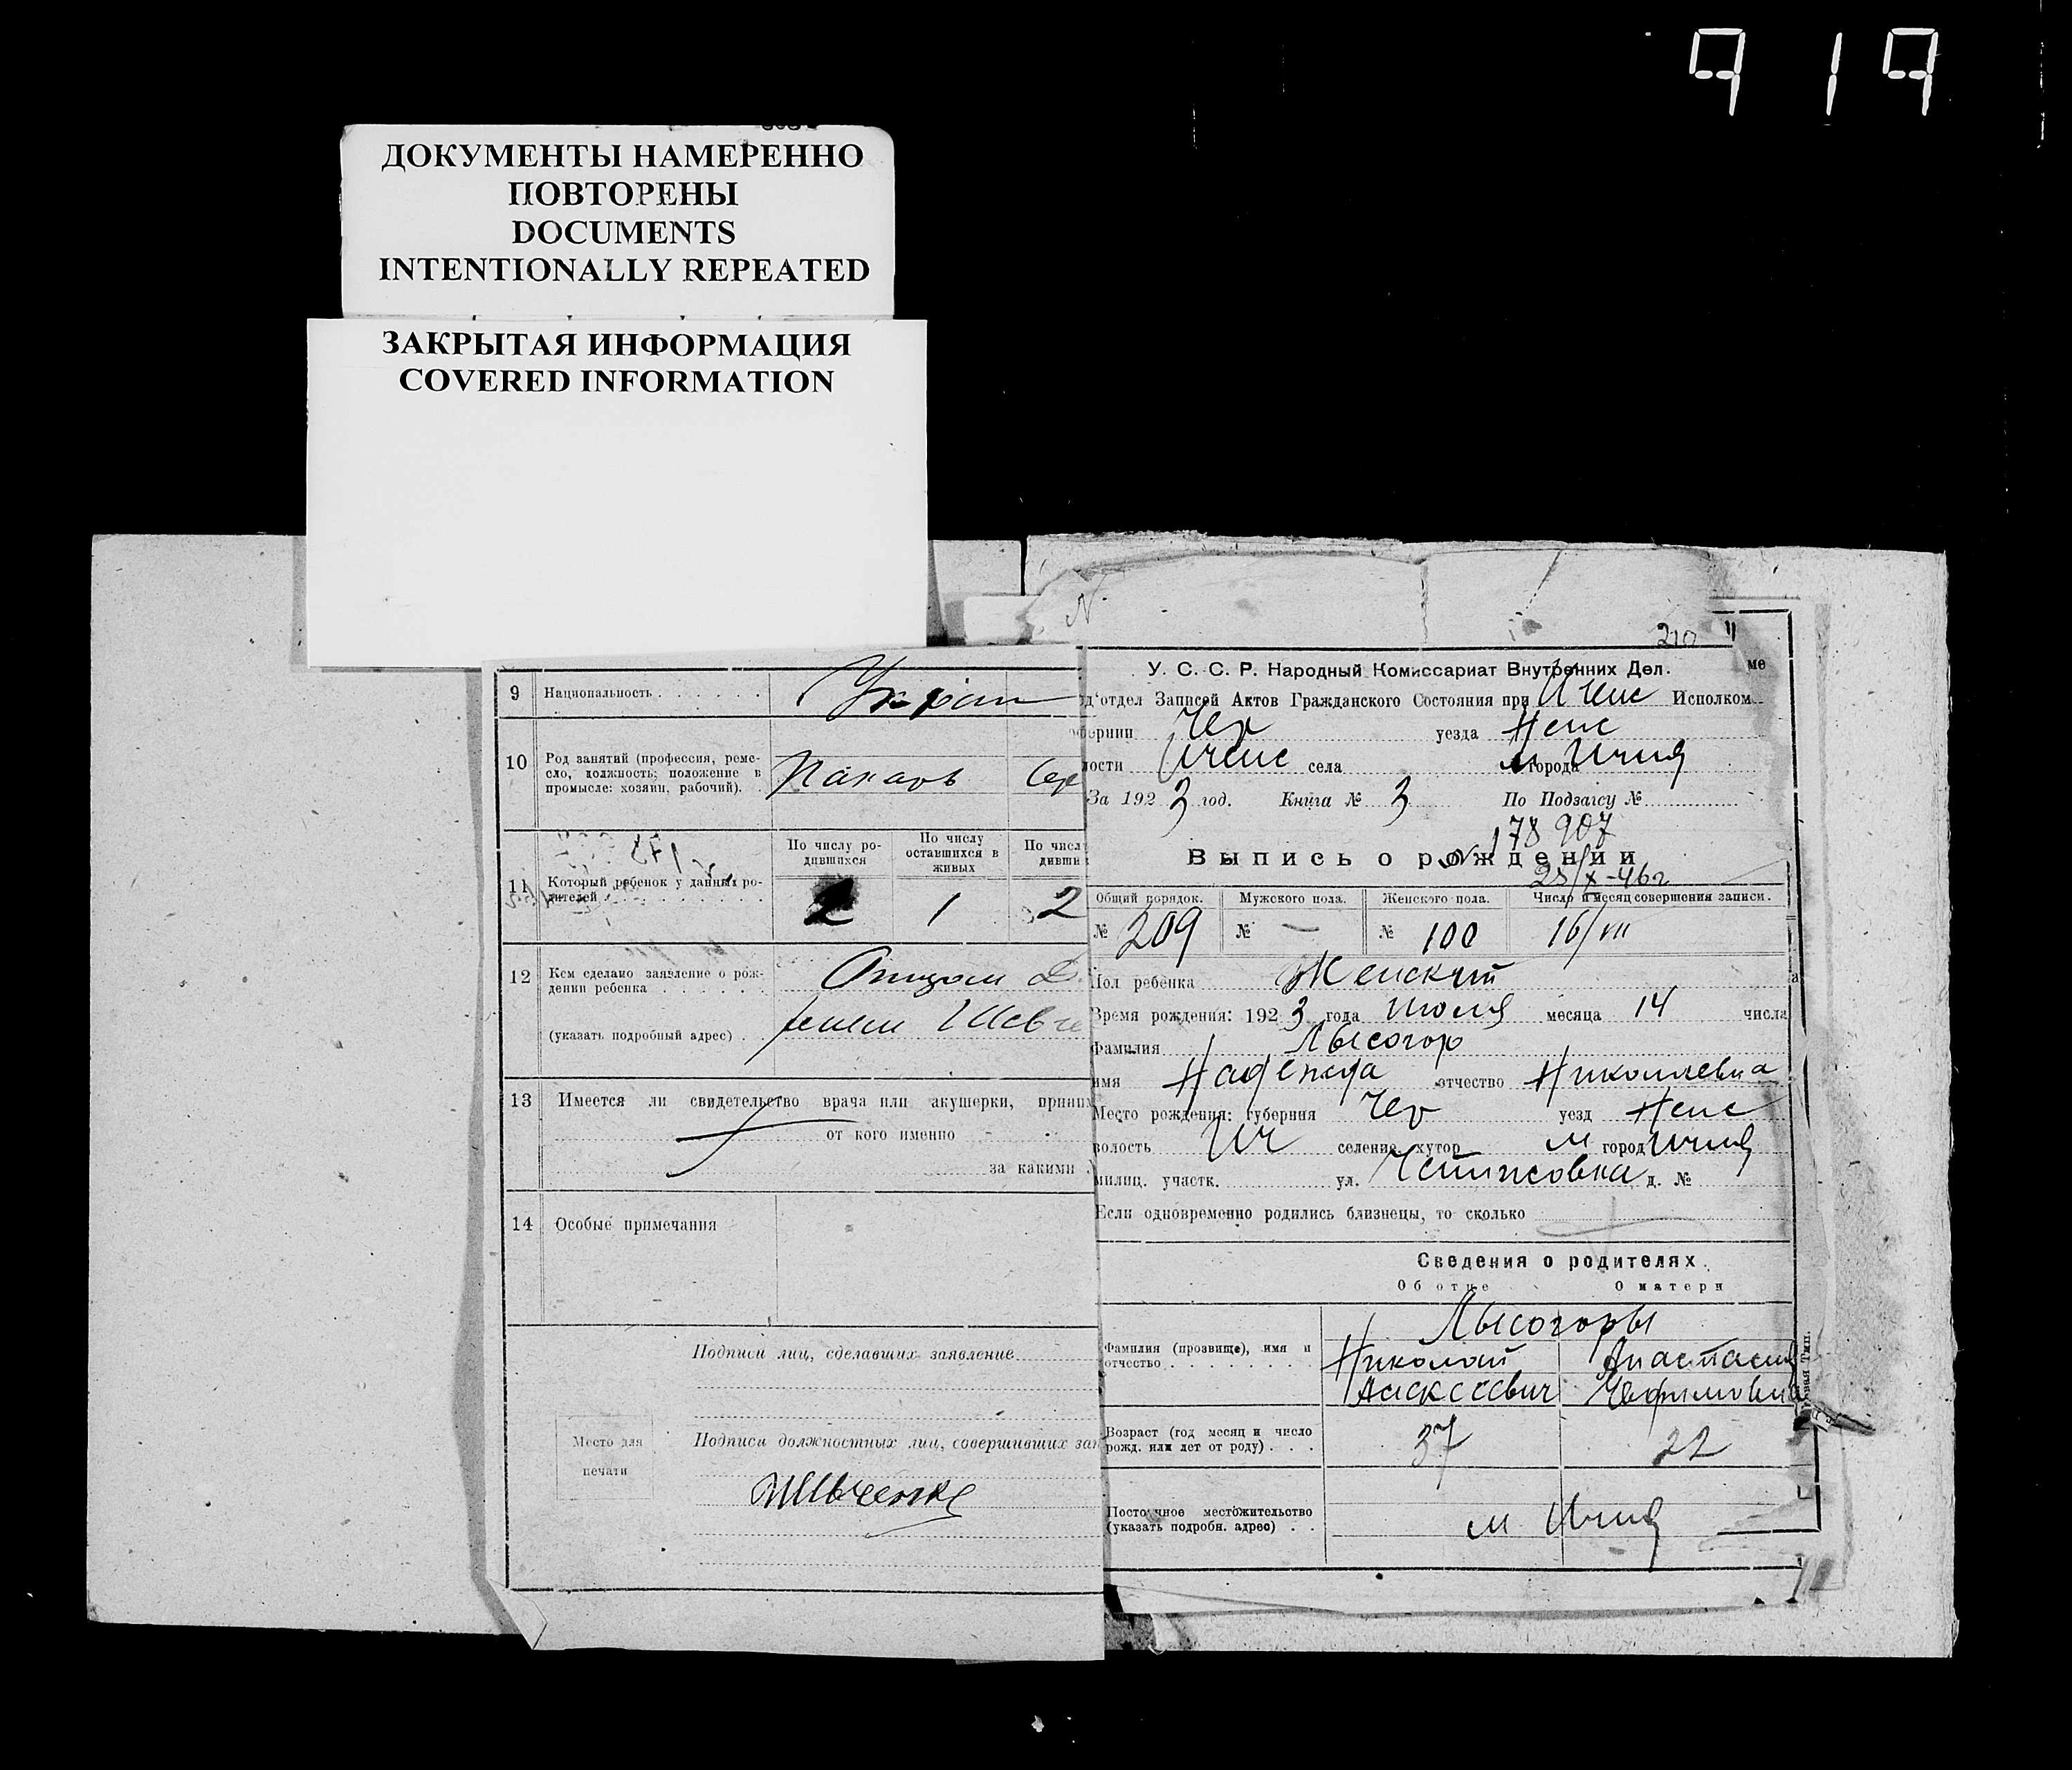 919
ДОКУМЕНТЫ НАМЕРЕННО
ПОВТОРЕНЫ
DOCUMENTS
INTENTIONALLY REPEATED
ЗАКРЫТАЯ ИНФОРМАЦИЯ
COVERED INFORMATION
9 Национальность Украин
10 Род занятий (профессия, реме-
сло, должность; положение в
промысле: хозяин, рабочий). Пахарь
11 Который ребенок у данных ро-
дителей
По числу ро-
дившихся
По числу
оставшихся в
живых
По числ
дивши
2 1 2
12 Кем сделано заявление о рож-
дении ребенка Отцом
(указать подробный адрес)
13 Имеется ли свидетельство врача или акушерки, прини
от кого именно
за какими
14 Особые примечания
Подписи лиц, сделавших заявление
Место для
печати
Подписи должностных лиц, совершивших зап
210
ме
У. С. С. Р. Народный Комиссариат Внутренних Дел.
д'отдел Записей Актов Гражданского Состояния при Ичнс Исполком
бернии Чер уезда Неж
лости Ичнс села м города Ичня
За 1923 год. Книга № 3 По Подзагсу №
№ 178907
Выпись о рождении
25/X-46г
Общий порядок. Мужского пола. Женского пола. Число и месяц совершения записи.
№ 209 № — № 100 16/VII
Пол ребенка Женский
Время рождения: 1923 года Июля месяца 14 числа
Фамилия Лысогор
имя Надежда отчество Николаевна
Место рождения: губерния Чер уезд Неж
волость Ич селение хутор м город Ичня
милиц. участк. ул. д. №
Если одновременно родились близнецы, то сколько
Сведения о родителях.
Об отце О матери
Лысогоры
Фамилия (прозвище), имя и
отчество
Николай Анастасия
Алексеевич Ефимовна
Возраст (год месяц и число
рожд. или лет от роду) 37 22
Постоянное местожительство
(указать подробн. адрес) м Ичня